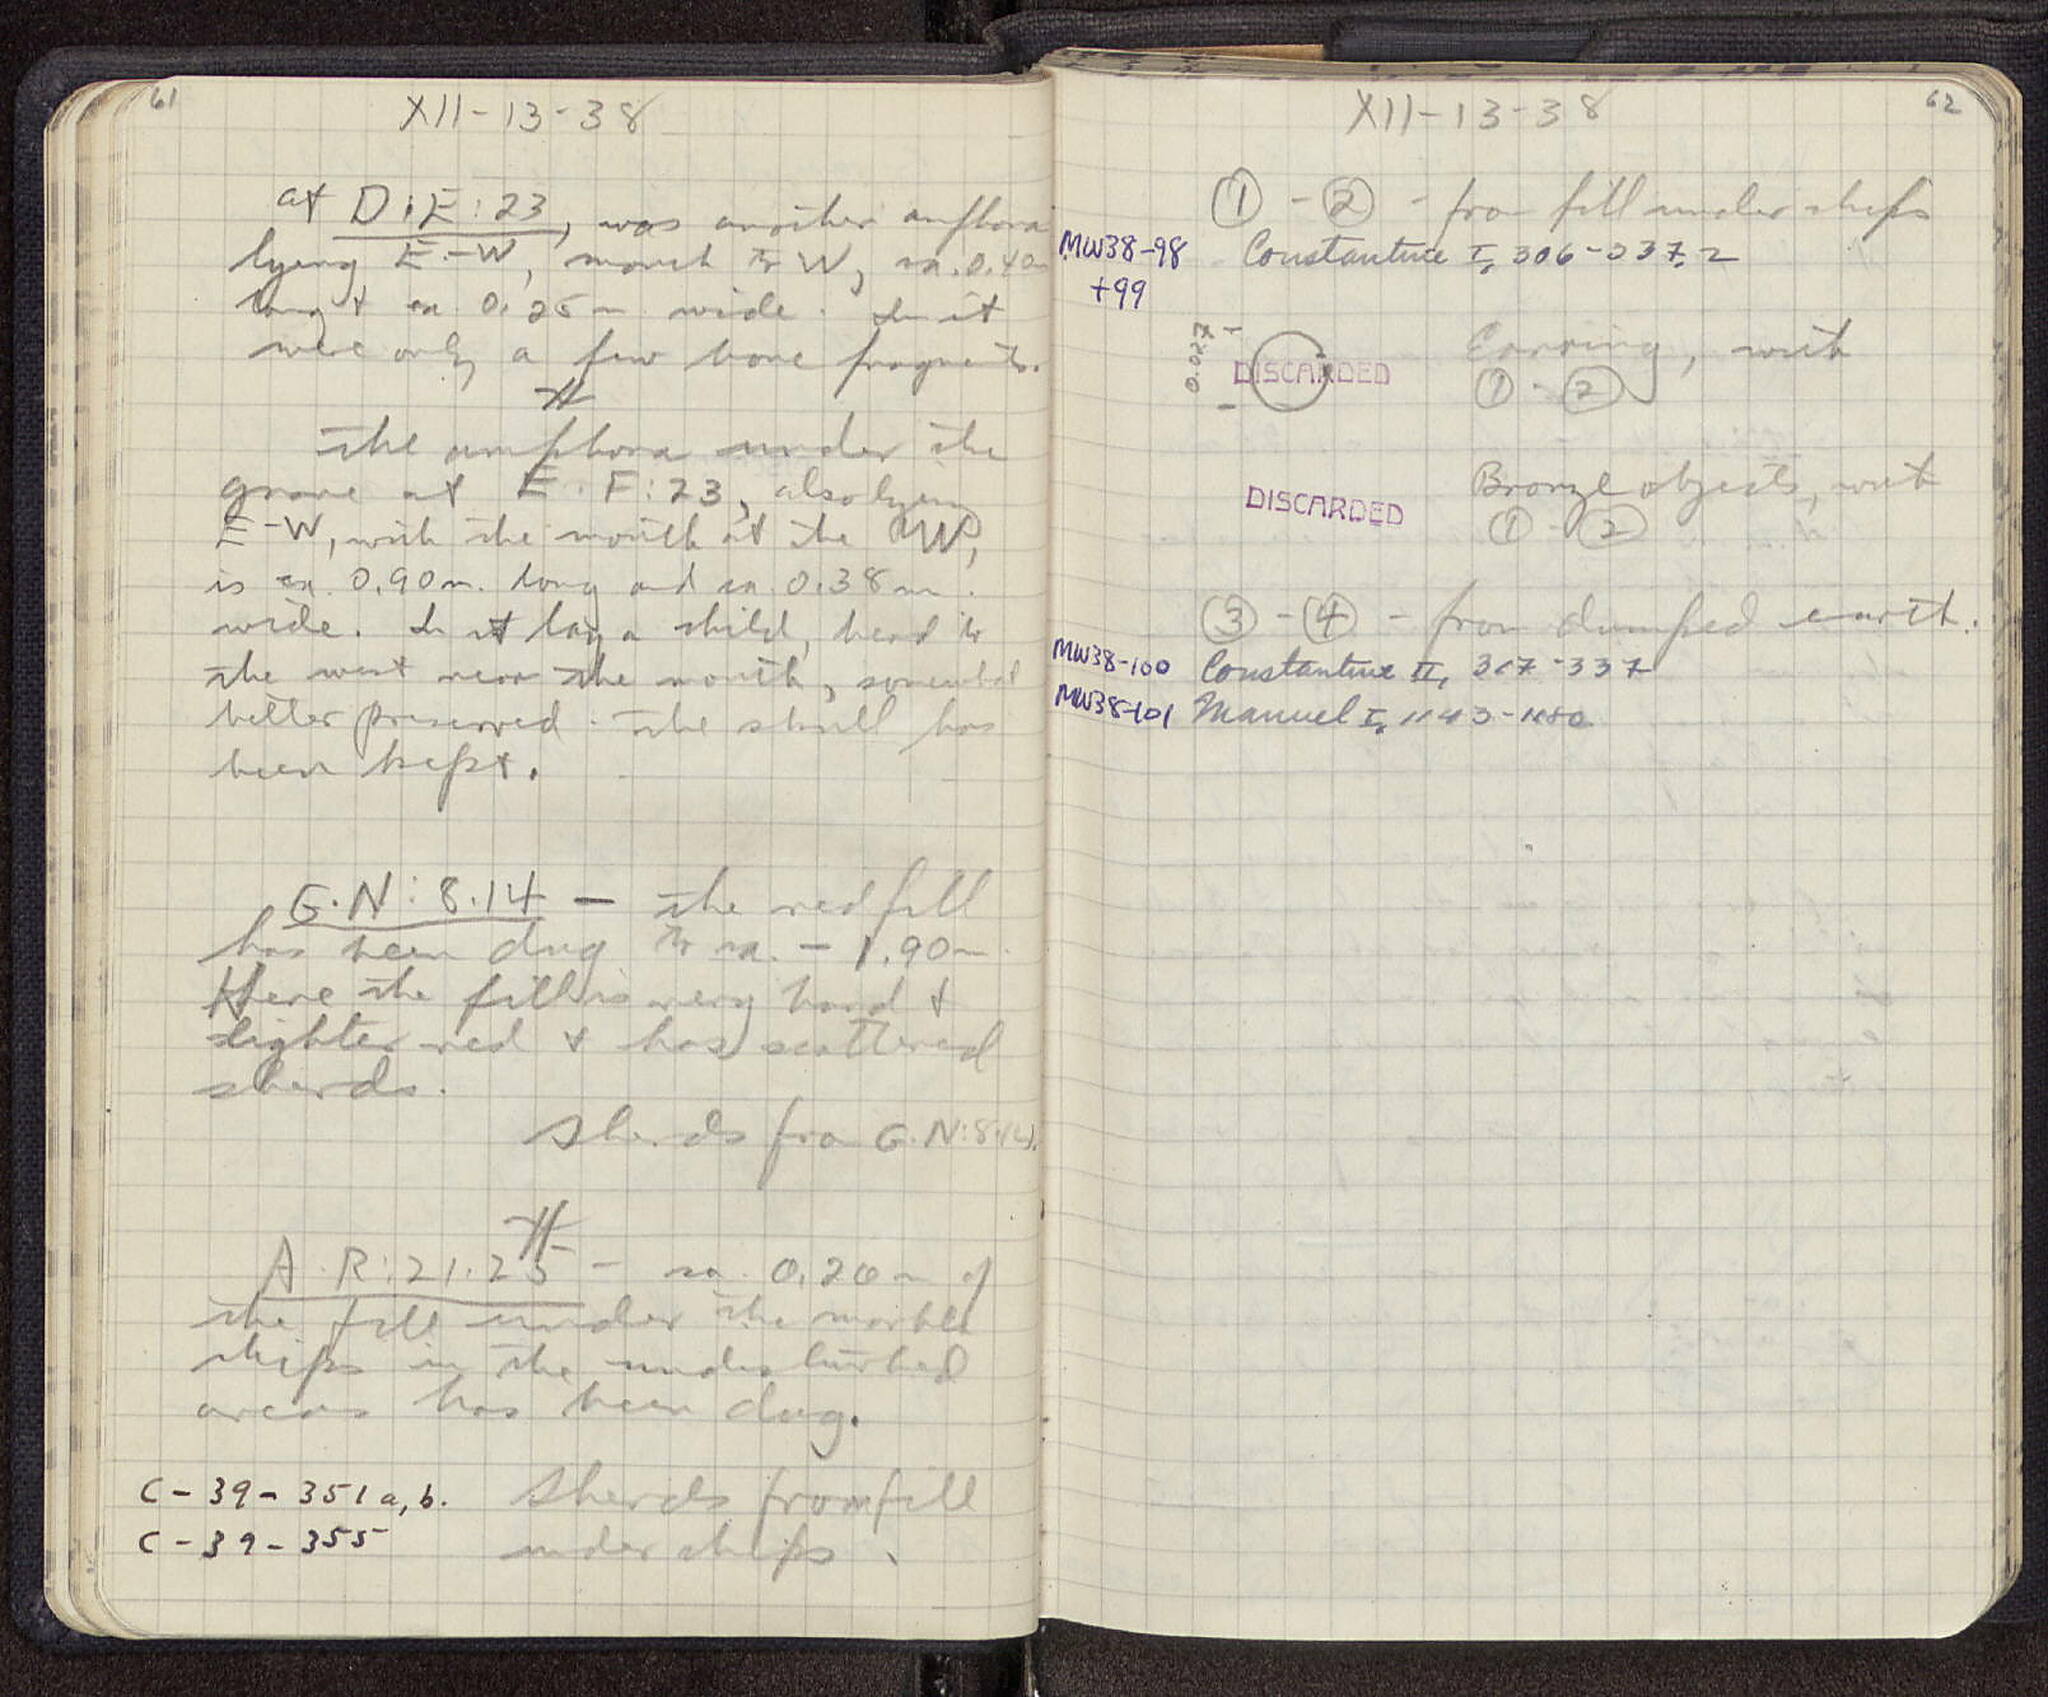 61
XII-13-38
at D.E:23, was another amphora
lying E-W, mouth to W, ca. 0.40m
long & ca. 0.25m wide. In it
were only a few bone fragments.
The amphora under the
grave at E.F:23, also lying
E-W, with the mouth at the W,
is ca. 0.90m. long and ca. 0.38m.
wide. In it lay a child, head to
the west near the mouth, somewhat
better preserved. The skull has
been kept.
G.N:8.14 — the red fill
has been dug to ca. -1.90m.
Here the fill is very hard &
lighter red & has scattered
sherds.
Sherds from G.N:8.14.
A.R:21.25 - ca. 0.20m of
the fill under the marble
chips in the undisturbed
areas has been dug.
C-39-351a,b. Sherds from fill
C-39-355 under chips.
62
XII-13-38
① - ② - from fill under chips
MW38-98 Constantine I, 306-337, 2
+99
0.027
DISCARDED
Earring, with
① - ②
DISCARDED
Bronze objects, with
① - ②
③ - ④ - from dumped earth.
MW38-100 Constantine II, 317-337
MW38-101 Manuel I, 1143-1180